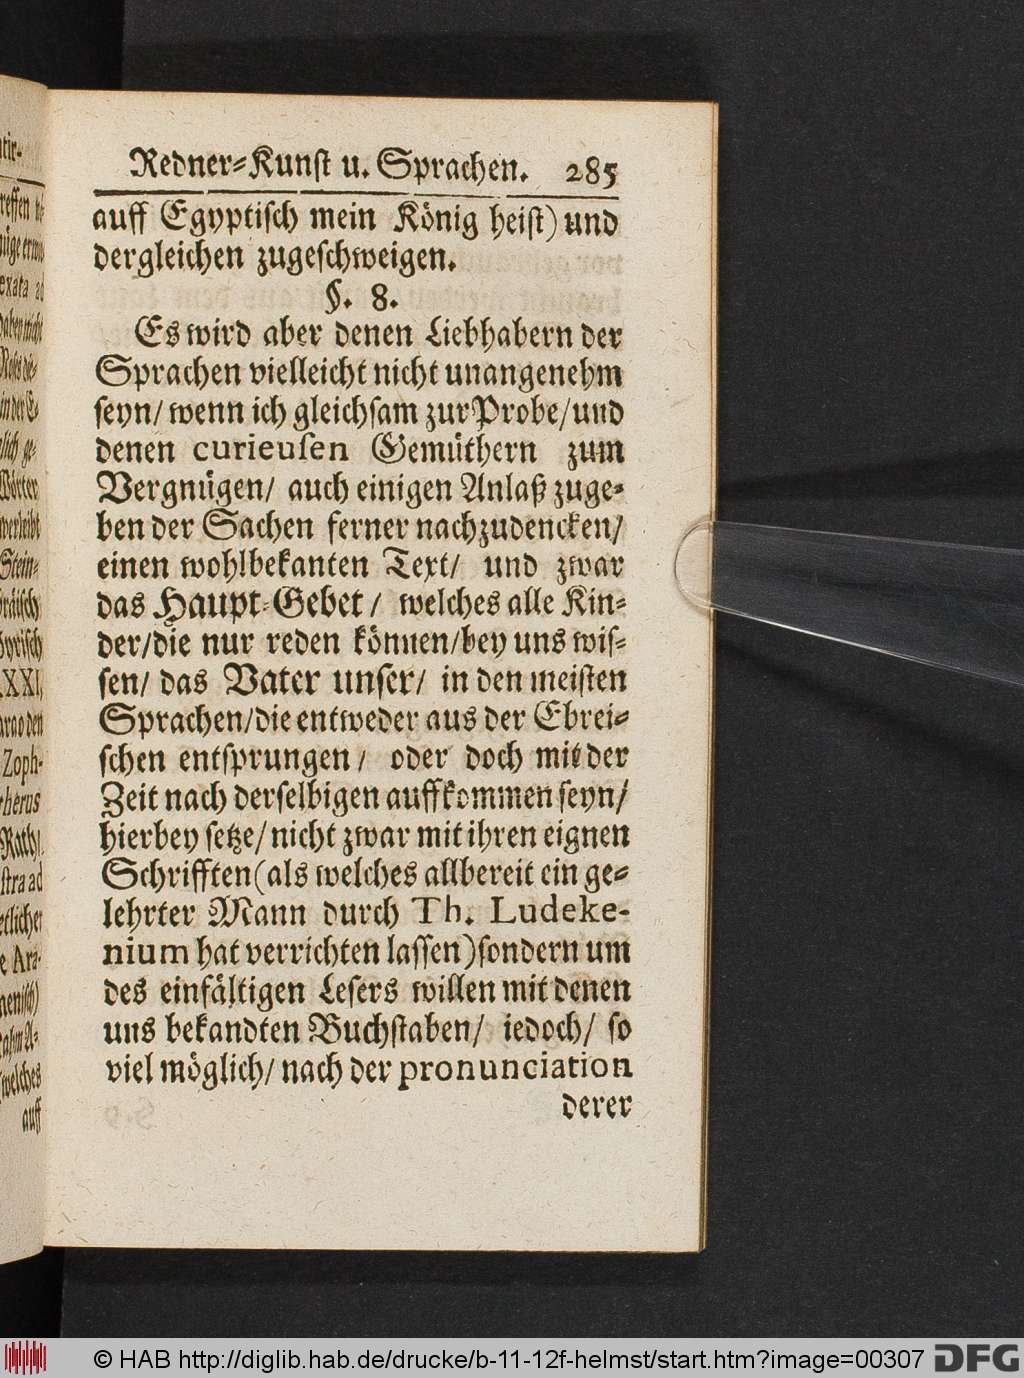 Redner-Kunst u. Sprachen. 285
auff Egyptisch mein König heist) und
dergleichen zugeschweigen.
§. 8.
Es wird aber denen Liebhabern der
Sprachen vielleicht nicht unangenehm
seyn/ wenn ich gleichsam zur Probe/ und
denen curieusen Gemüthern zum
Vergnügen/ auch einigen Anlaß zuge-
ben der Sachen ferner nachzudencken/
einen wohlbekanten Text/ und zwar
das Haupt-Gebet/ welches alle Kin-
der/ die nur reden können/ bey uns wis-
sen/ das Vater unser/ in den meisten
Sprachen/ die entweder aus der Ebrei-
schen entsprungen/ oder doch mit der
Zeit nach derselbigen auffkommen seyn/
hierbey setze/ nicht zwar mit ihren eignen
Schrifften (als welches allbereit ein ge-
lehrter Mann durch Th. Ludeke-
nium hat verrichten lassen) sondern um
des einfältigen Lesers willen mit denen
uns bekandten Buchstaben/ iedoch/ so
viel möglich/ nach der pronunciation
derer
© HAB http://diglib.hab.de/drucke/b-11-12f-helmst/start.htm?image=00307
DFG